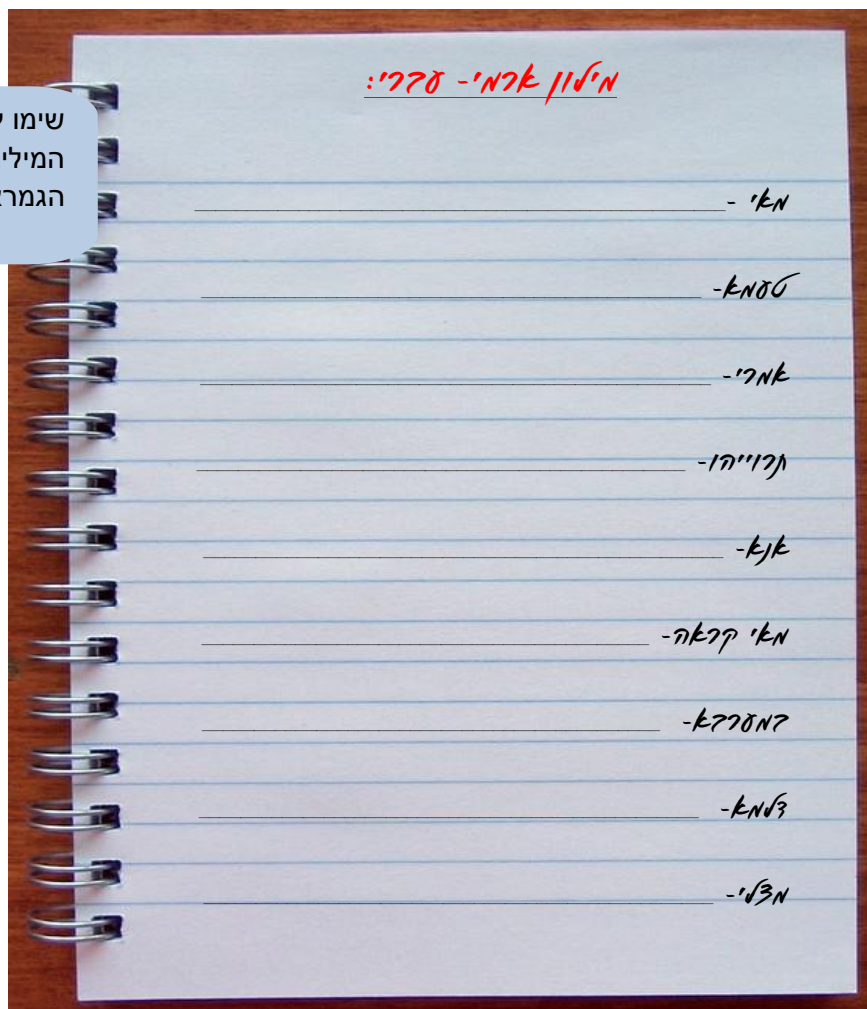 מילון ארמי- עברי:
שימו
מאי -
טעמא-
אמרי-
תרוייהו-
אנא-
מאי קראה-
במערבא-
דלמא-
מצלי-